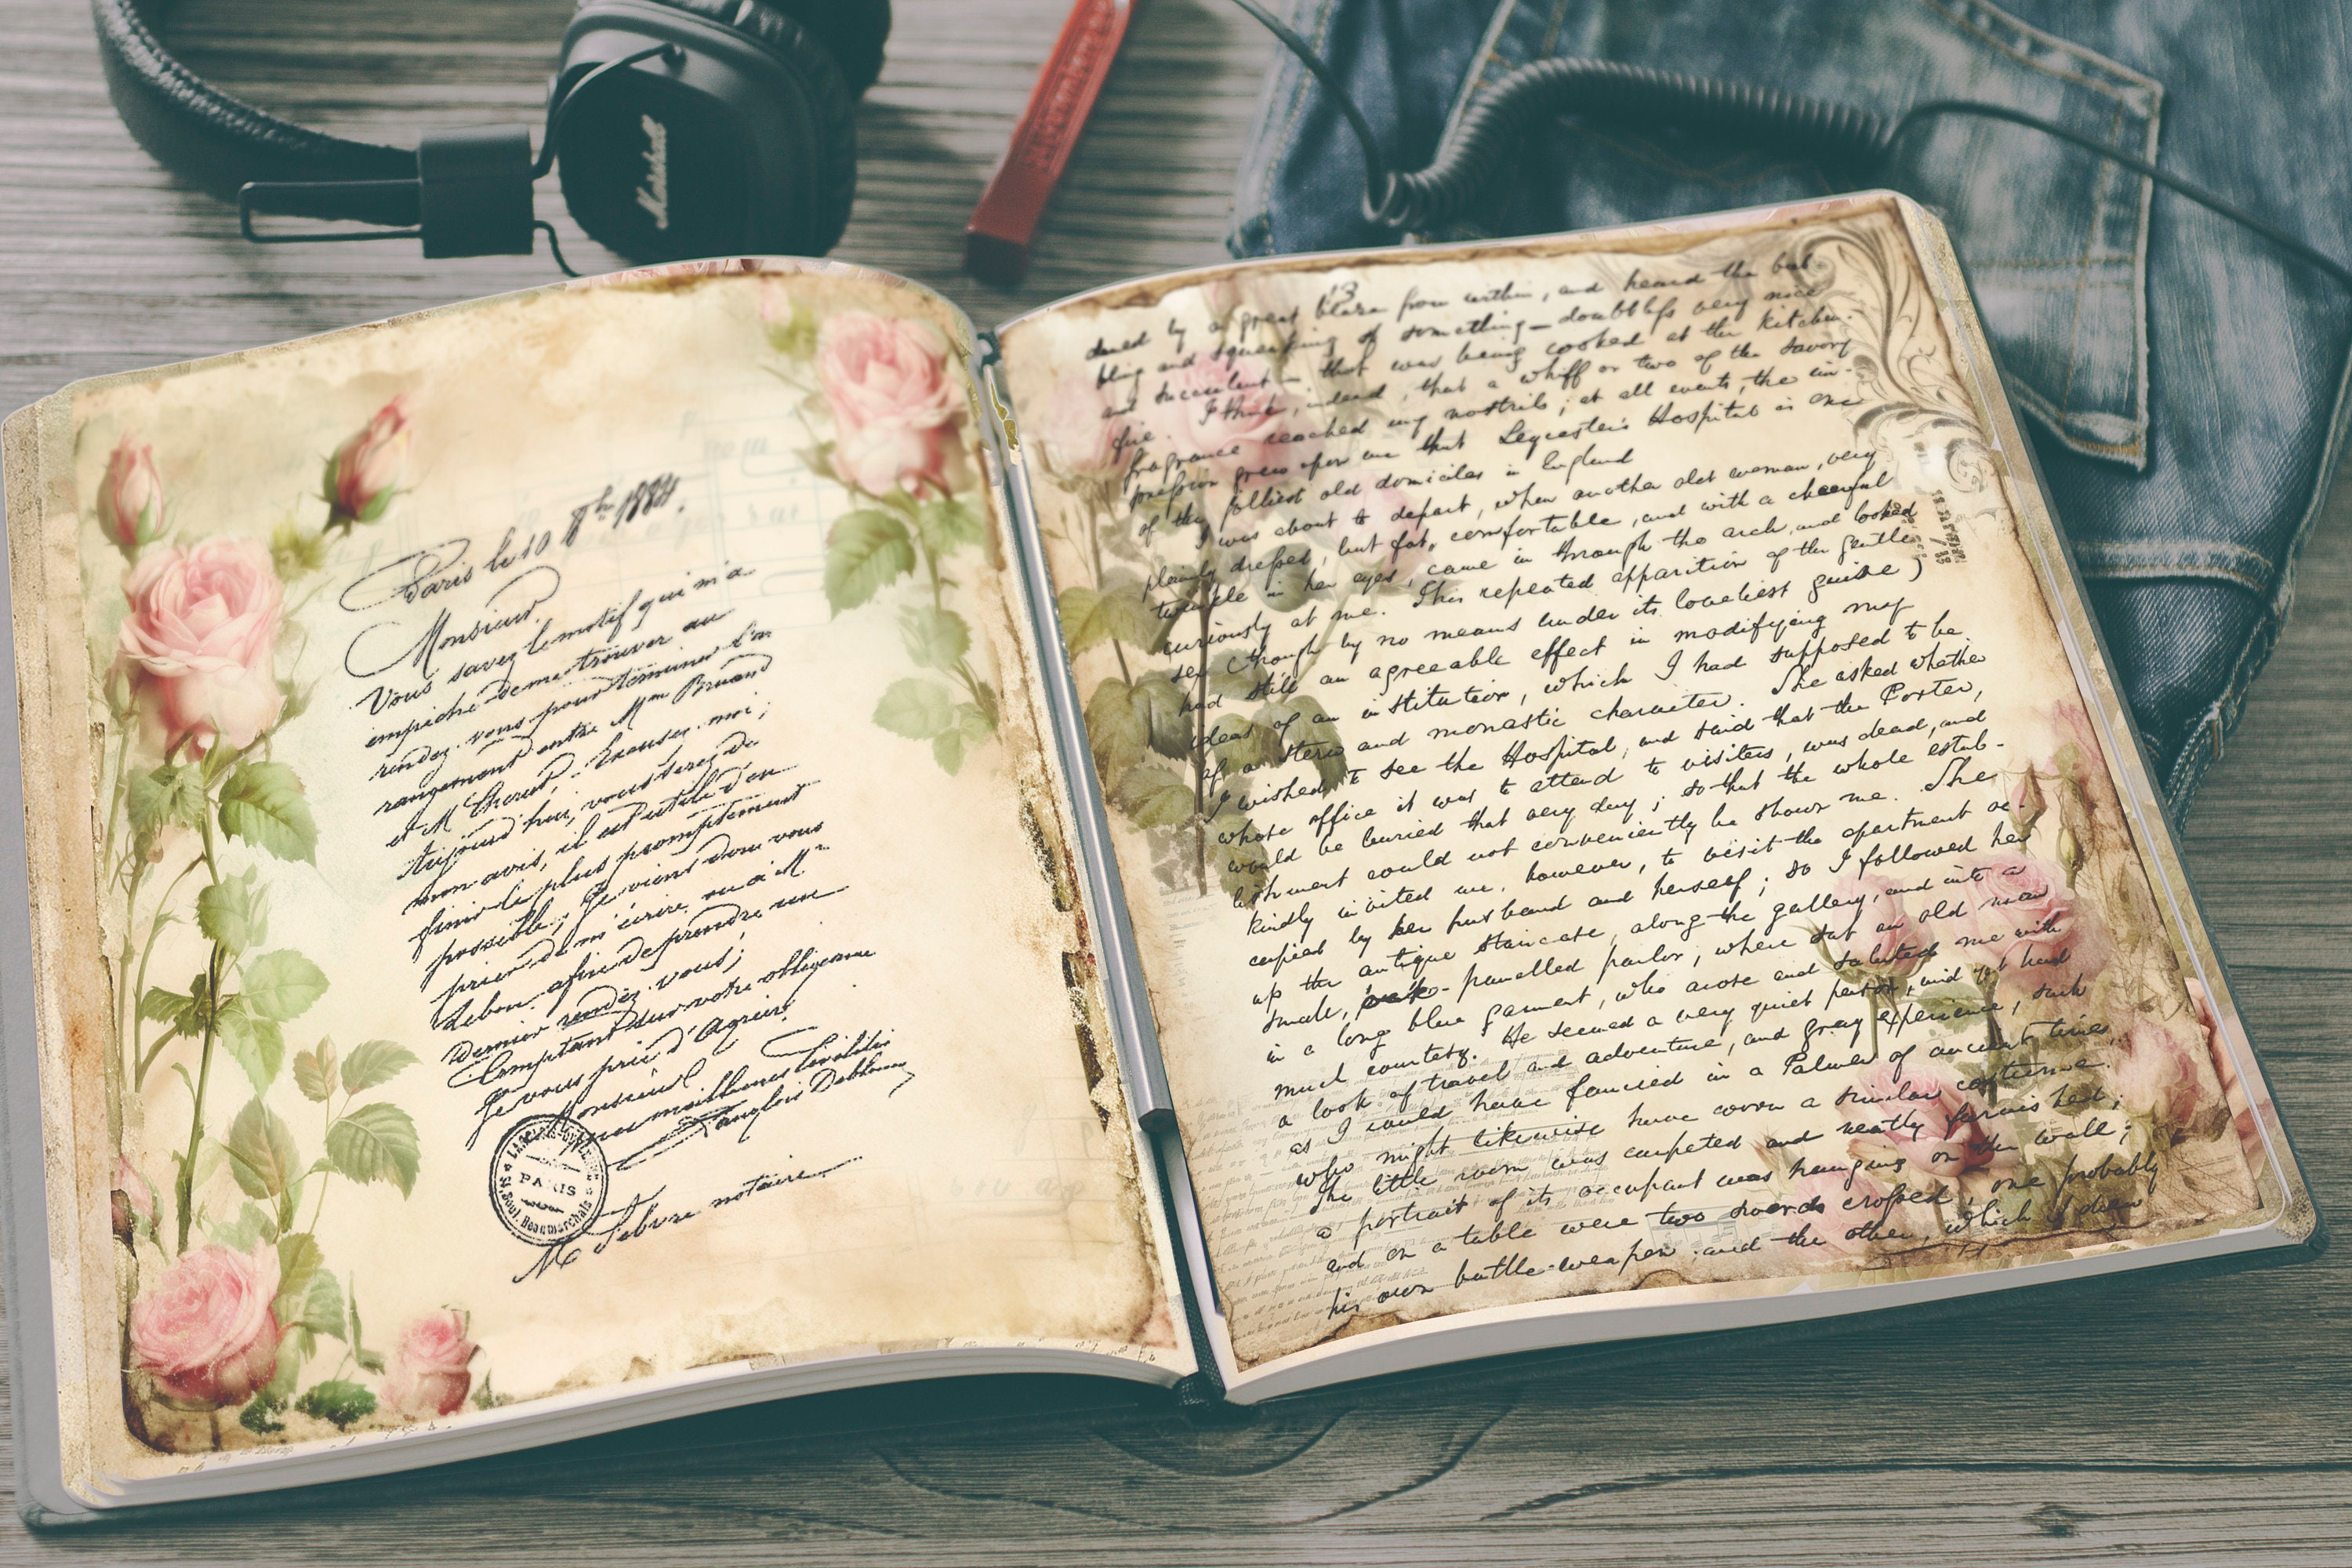 Marshall
Paris le 10 8bre 1884.
Monsieur,
Vous savez le motif qui m'a
empêché de me trouver au
rendez-vous pour terminer l'ar
rangement entre Mme Bruand
et M. Excusez-moi;
aujourd'hui, vous serez de
mon avis, il est utile d'en
finir le plus promptement
possible; Je viens donc vous
prier de m'écrire ou à Mr
Lebvre afin de prendre un
dernier rendez-vous;
Comptant sur votre obligeance
Je vous prie d'Agréer,
Monsieur
mes meilleures Civilités
Langlois
PARIS
Bd. Beaumarchais
M. Lebvre notaire
13
dened by a great blaze from within, and heard the bub
bling and squeaking of something—doubtless very nice
and succulent—that was being cooked at the kitchen-
fire. I think, indeed, that a whiff or two of the savory
fragrance reached my nostrils; at all events, the im-
pression grew upon me that Leycester's Hospital is one
of the jolliest old domiciles in England
I was about to depart, when another old woman, very
plainly dressed, but fat, comfortable, and with a cheerful
twinkle in her eyes, came in through the arch, and looked
curiously at me. This repeated apparition of the gentle
sex (though by no means under its loveliest guise)
had still an agreeable effect in modifying my
ideas of an institution, which I had supposed to be
of a stern and monastic character. She asked whether
I wished to see the Hospital, and said that the Porter,
whose office it was to attend to visitors, was dead, and
would be buried that very day; so that the whole estab-
lishment could not conveniently be shown me. She
kindly invited me, however, to visit the apartment oc-
cupied by her husband and herself; so I followed her
up the antique staircase, along the gallery, and into a
small, oak-panelled parlor, where sat an old man
in a long blue garment, who arose and saluted me with
much courtesy. He seemed a very quiet person, and yet had
a look of travel and adventure, and gray experience, such
as I could have fancied in a Palmer of ancient times,
who might likewise have worn a similar costume.
The little room was carpeted and neatly furnished;
a portrait of its occupant was hanging on the wall;
and on a table were two swords crossed, one probably
his own battle-weapon, and the other, which I drew